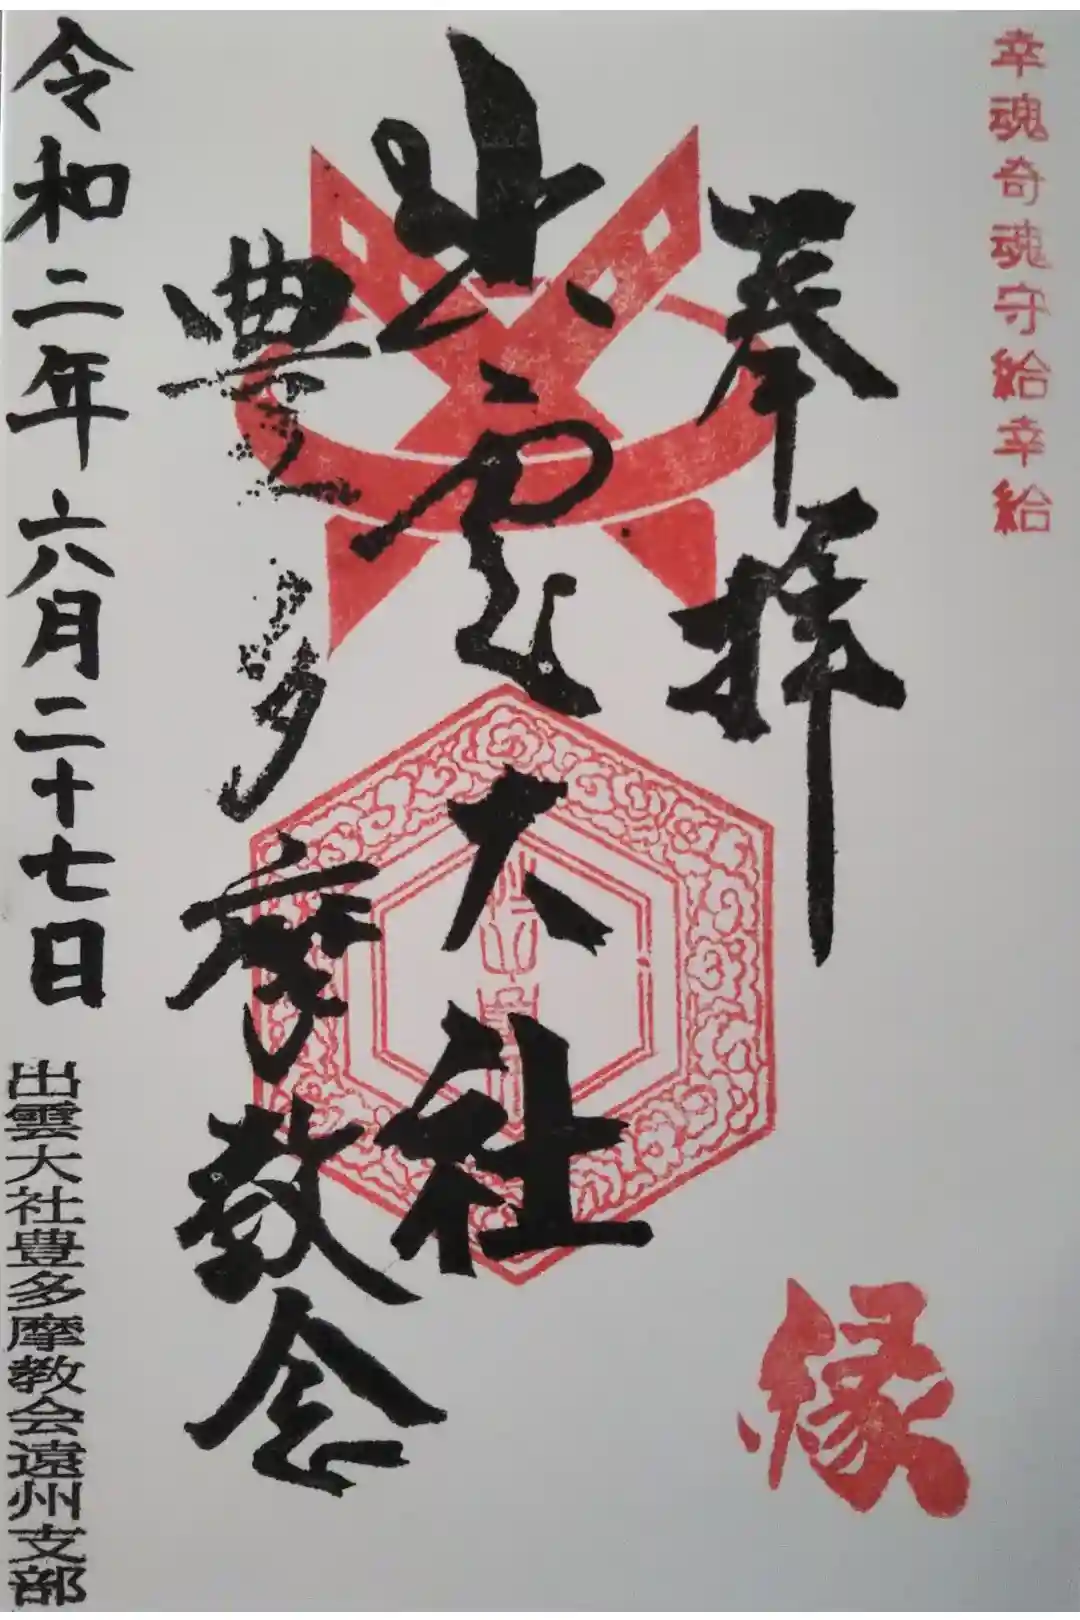 幸魂奇魂守給幸給
奉拝
出雲大社
豊多摩教会
令和二年六月二十七日
出雲大社豊多摩教会遠州支部
縁